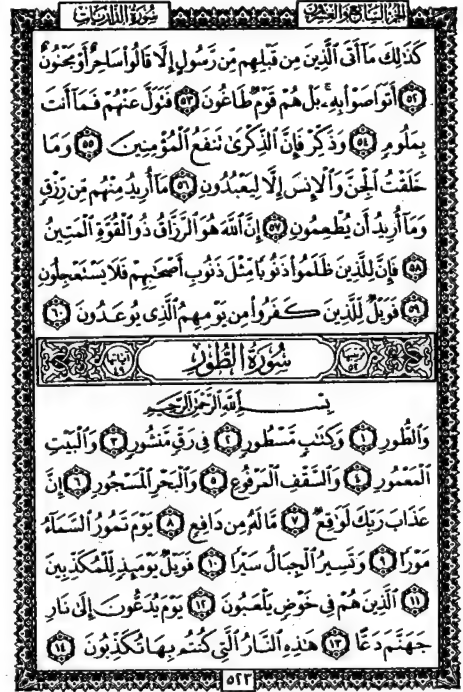 الجزء السابع والعشرون
سورة الذاريات
كَذَٰلِكَ مَآ أَتَى ٱلَّذِينَ مِن قَبۡلِهِم مِّن رَّسُولٍ إِلَّا قَالُواْ سَاحِرٌ أَوۡ مَجۡنُونٌ
٥٢ أَتَوَاصَوۡاْ بِهِۦۚ بَلۡ هُمۡ قَوۡمٞ طَاغُونَ ٥٣ فَتَوَلَّ عَنۡهُمۡ فَمَآ أَنتَ
بِمَلُومٖ ٥٤ وَذَكِّرۡ فَإِنَّ ٱلذِّكۡرَىٰ تَنفَعُ ٱلۡمُؤۡمِنِينَ ٥٥ وَمَا
خَلَقۡتُ ٱلۡجِنَّ وَٱلۡإِنسَ إِلَّا لِيَعۡبُدُونِ ٥٦ مَآ أُرِيدُ مِنۡهُم مِّن رِّزۡقٖ
وَمَآ أُرِيدُ أَن يُطۡعِمُونِ ٥٧ إِنَّ ٱللَّهَ هُوَ ٱلرَّزَّاقُ ذُو ٱلۡقُوَّةِ ٱلۡمَتِينُ
٥٨ فَإِنَّ لِلَّذِينَ ظَلَمُواْ ذَنُوبٗا مِّثۡلَ ذَنُوبِ أَصۡحَٰبِهِمۡ فَلَا يَسۡتَعۡجِلُونِ
٥٩ فَوَيۡلٞ لِّلَّذِينَ كَفَرُواْ مِن يَوۡمِهِمُ ٱلَّذِي يُوعَدُونَ ٦٠
ترتيبها ٥٢
سورة الطور
آياتها ٤٩
بِسۡمِ ٱللَّهِ ٱلرَّحۡمَٰنِ ٱلرَّحِيمِ
وَٱلطُّورِ ١ وَكِتَٰبٖ مَّسۡطُورٖ ٢ فِي رَقّٖ مَّنشُورٖ ٣ وَٱلۡبَيۡتِ
ٱلۡمَعۡمُورِ ٤ وَٱلسَّقۡفِ ٱلۡمَرۡفُوعِ ٥ وَٱلۡبَحۡرِ ٱلۡمَسۡجُورِ ٦ إِنَّ
عَذَابَ رَبِّكَ لَوَٰقِعٞ ٧ مَّا لَهُۥ مِن دَافِعٖ ٨ يَوۡمَ تَمُورُ ٱلسَّمَآءُ
مَوۡرٗا ٩ وَتَسِيرُ ٱلۡجِبَالُ سَيۡرٗا ١٠ فَوَيۡلٞ يَوۡمَئِذٖ لِّلۡمُكَذِّبِينَ
١١ ٱلَّذِينَ هُمۡ فِي خَوۡضٖ يَلۡعَبُونَ ١٢ يَوۡمَ يُدَعُّونَ إِلَىٰ نَارِ
جَهَنَّمَ دَعًّا ١٣ هَٰذِهِ ٱلنَّارُ ٱلَّتِي كُنتُم بِهَا تُكَذِّبُونَ ١٤
٥٢٣